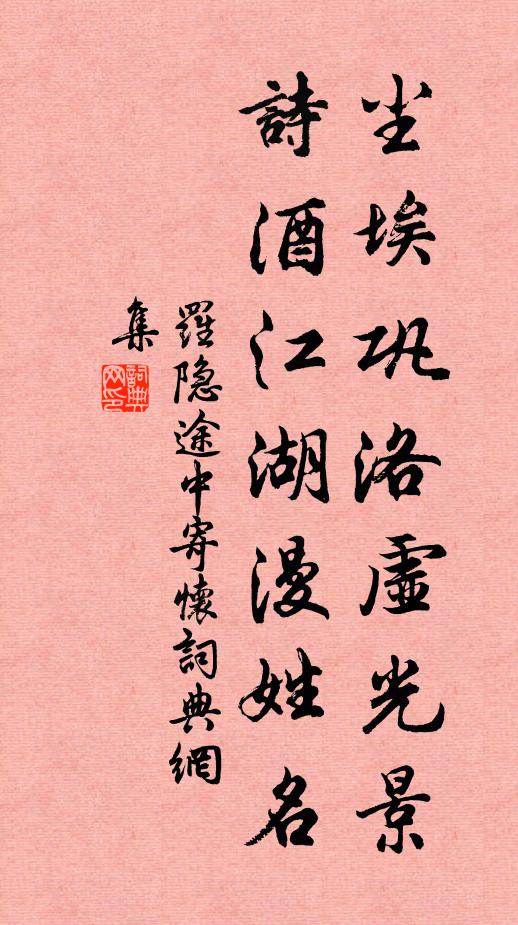 尘埃巩洛虚光景
詩酒江湖漫姓名
羅隐途中寄懷詞典網
集
詞典
网印